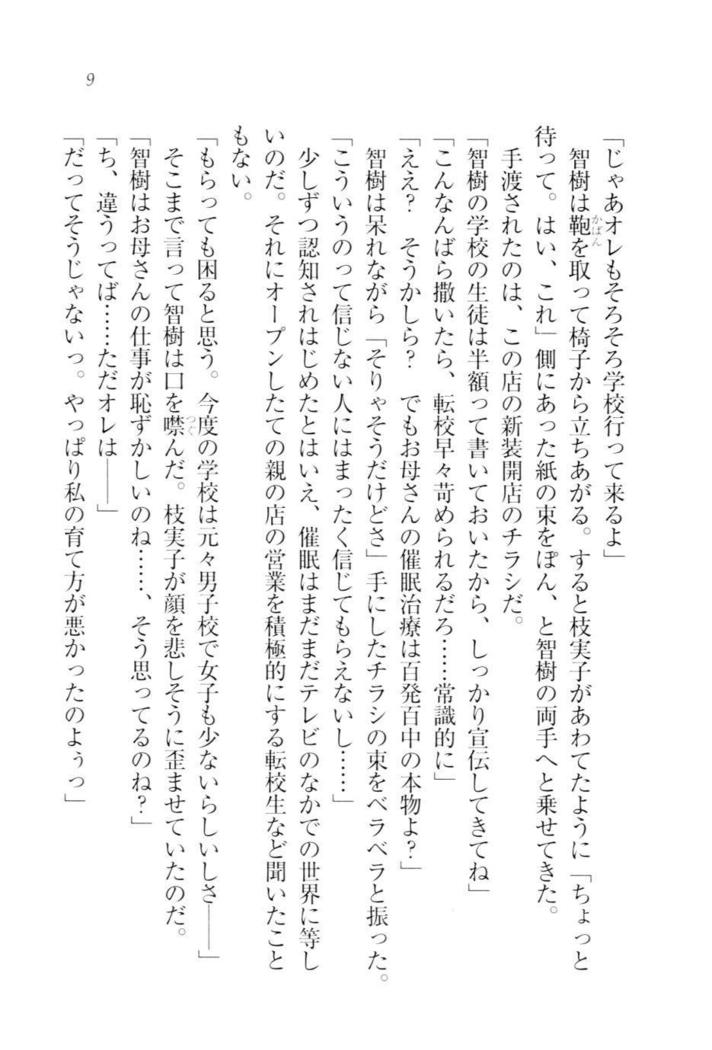 9
「じゃあオレもそろそろ学校行って来るよ」
智樹は鞄を取って椅子から立ちあがる。すると枝実子があわてたように「ちょっと
かばん
待って。はい、これ」側にあった紙の束をぽん、と智樹の両手へと乗せてきた。
手渡されたのは、この店の新装開店のチラシだ。
「智樹の学校の生徒は半額って書いておいたから、しっかり宣伝してきてね」
「こんなんばら撒いたら、転校早々苛められるだろ……常識的に」
「ええ？　そうかしら？　でもお母さんの催眠治療は百発百中の本物よ？」
智樹は呆れながら「そりゃそうだけどさ」手にしたチラシの束をベラベラと振った。
「こういうのって信じない人にはまったく信じてもらえないし……」
少しずつ認知されはじめたとはいえ、催眠はまだまだテレビのなかでの世界に等し
いのだ。それにオープンしたての親の店の営業を積極的にする転校生など聞いたこと
もない。
「もらっても困ると思う。今度の学校は元々男子校で女子も少ないらしいしさ――」
そこまで言って智樹は口を噤んだ。枝実子が顔を悲しそうに歪ませていたのだ。
つぐ
「智樹はお母さんの仕事が恥ずかしいのね……、そう思ってるのね？」
「ち、違うってば……ただオレは――」
「だってそうじゃないっ。やっぱり私の育て方が悪かったのよぅっ」